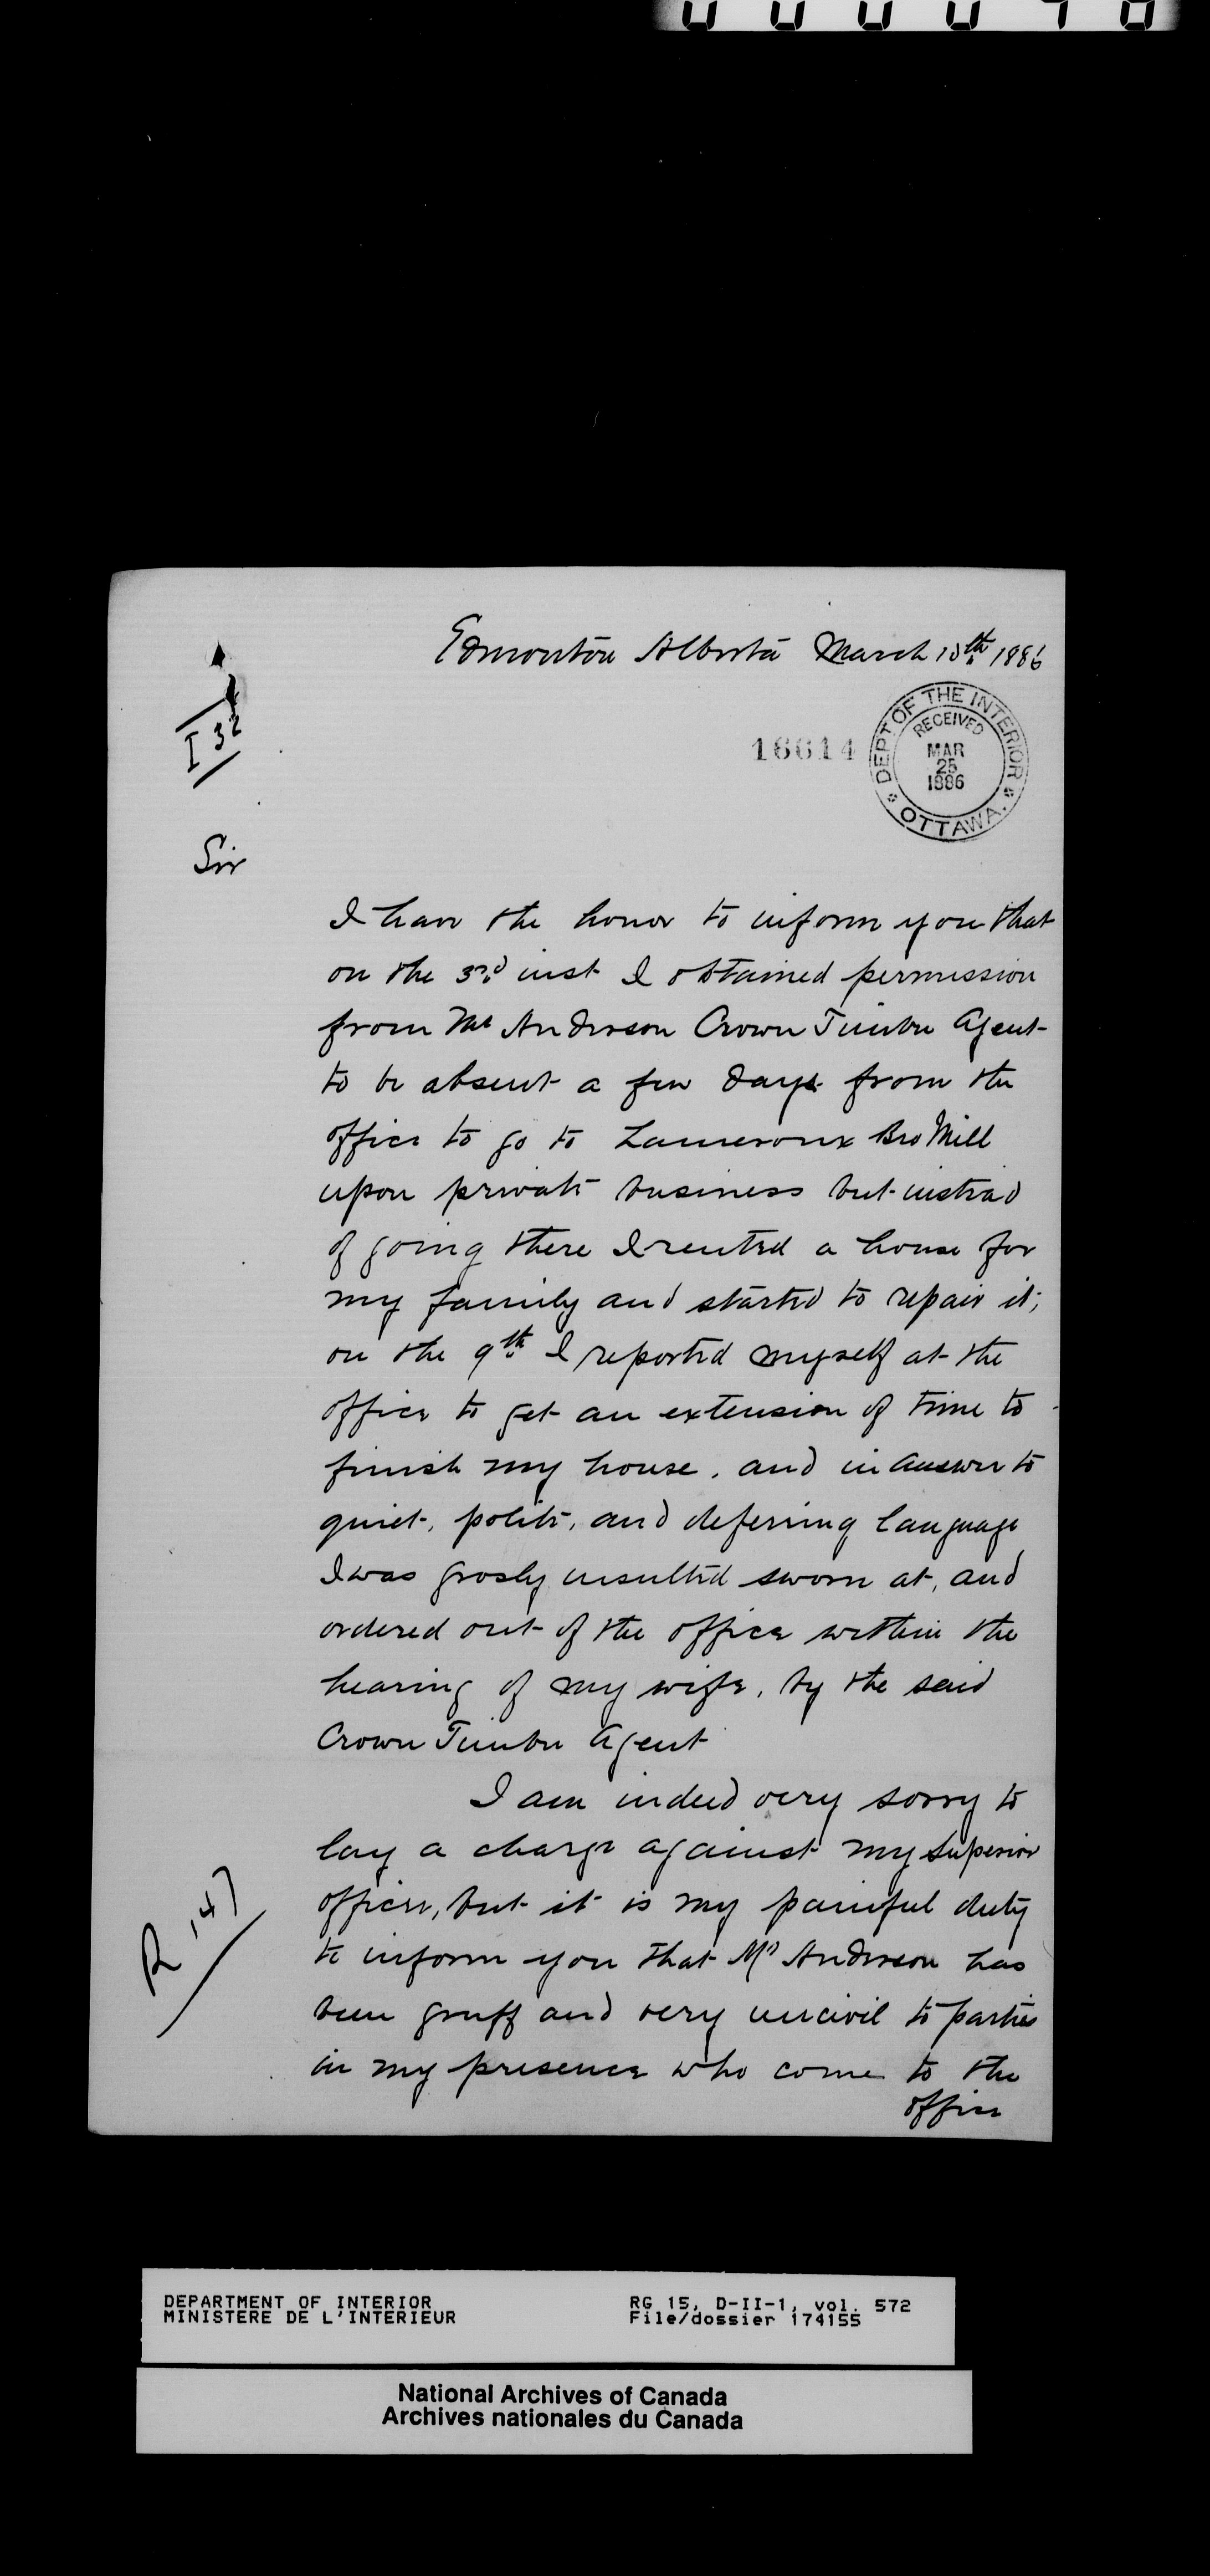 Edmonton Alberta March 10th 1886
16614
DEPT OF THE INTERIOR
RECEIVED
MAR
25
1886
OTTAWA.
I 32
Sir
I have the honor to inform you that
on the 3rd inst I obtained permission
from Mr Anderson Crown Timber Agent
to be absent a few days from the
office to go to Lameroux Bro Mill
upon private business but instead
of going there I rented a house for
my family and started to repair it;
on the 9th I reported myself at the
office to get an extension of time to
finish my house, and in answer to
quiet, polite, and deferring language
I was grosly insulted sworn at, and
ordered out of the office within the
hearing of my wife, by the said
Crown Timber Agent
I am indeed very sorry to
lay a charge against my superior
officer, but it is my painful duty
to inform you that Mr Anderson has
been gruff and very uncivil to parties
in my presence who come to the
office
R,47
DEPARTMENT OF INTERIOR
MINISTERE DE L'INTERIEUR
RG 15, D-II-1, vol. 572
File/dossier 174155
National Archives of Canada
Archives nationales du Canada